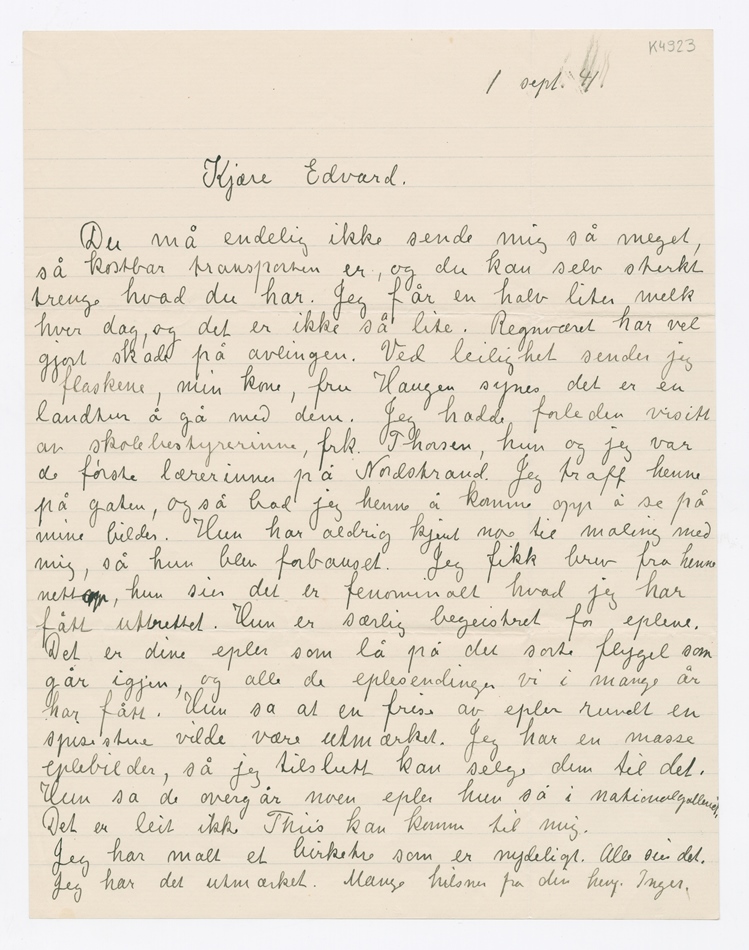 K4923
1 sept. 41.
Kjære Edvard.
Du må endelig ikke sende mig så meget,
så kostbar transporten er, og du kan selv sterkt
trenge hvad du har. Jeg får en halv liter melk
hver dag, og det er ikke så lite. Regnværet har vel
gjort skade på avlingen. Ved leilighet sender jeg
flaskene, min kone, fru Haugen synes det er en
landtur å gå med dem. Jeg hadde forleden visitt
av skolebestyrerinne, frk. Thorsen, hun og jeg var
de første lærerinner på Nordstrand. Jeg traff henne
på gaten, og så bad jeg henne å komme opp å se på
mine bilder. Hun har aldrig kjent noe til maling med
mig, så hun blev forbauset. Jeg fikk brev fra henne
nettop, hun sier det er fenominalt hvad jeg har
fått utrettet. Hun er særlig begeistret for eplene.
Det er dine epler som lå på det sorte flygel som
går igjen, og alle de eplesendinger vi i mange år
har fått. Hun sa at en frise av epler rundt en
spisestue vilde være utmærket. Jeg har en masse
eplebilder, så jeg tilslutt kan selge dem til det.
Hun sa de overgår noen epler hun så i nationalgalleriet.
Det er leit ikke Thiis kan komme til mig.
Jeg har malt et birketre som er nydeligt. Alle sier det.
Jeg har det utmærket. Mange hilsner fra din heng. Inger.